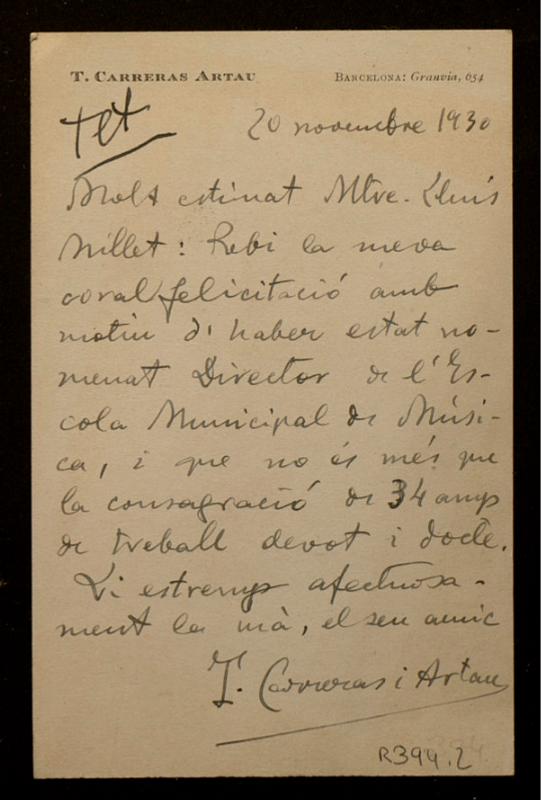 T. Carreras Artau
Barcelona: Granvia, 654
tet
20 novembre 1930
Molt estimat Mtre. Lluís
Millet: Rebi la meva
coral felicitació amb
motiu d'haber estat no-
menat Director de l'Es-
cola Municipal de Músi-
ca, i que no és més que
la consagració de 34 anys
de treball devot i docte.
Li estreny afectuosa-
ment la mà, el seu amic
T. Carreras i Artau
R394.2